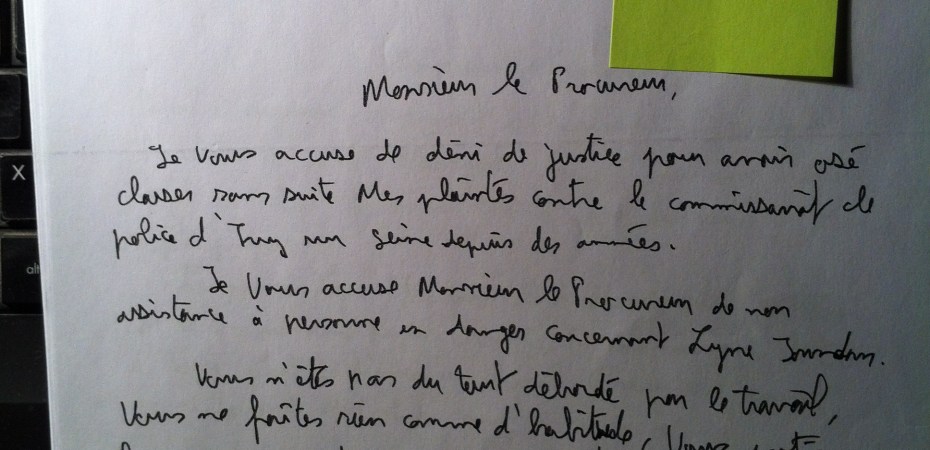 Monsieur le Procureur,
Je vous accuse de déni de justice pour avoir osé
classer sans suite mes plaintes contre le commissariat de
police d'Ivry sur Seine depuis des années.
Je vous accuse Monsieur le Procureur de non
assistance à personne en danger concernant Lyne
Vous n'êtes pas du tout débordé par le travail,
Vous ne faîtes rien comme d'habitude, Vous
X
alt